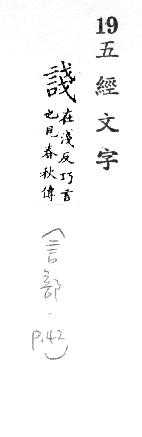 19五經文字
諓
在淺反巧言
也見春秋傳
(言部.
P.42)